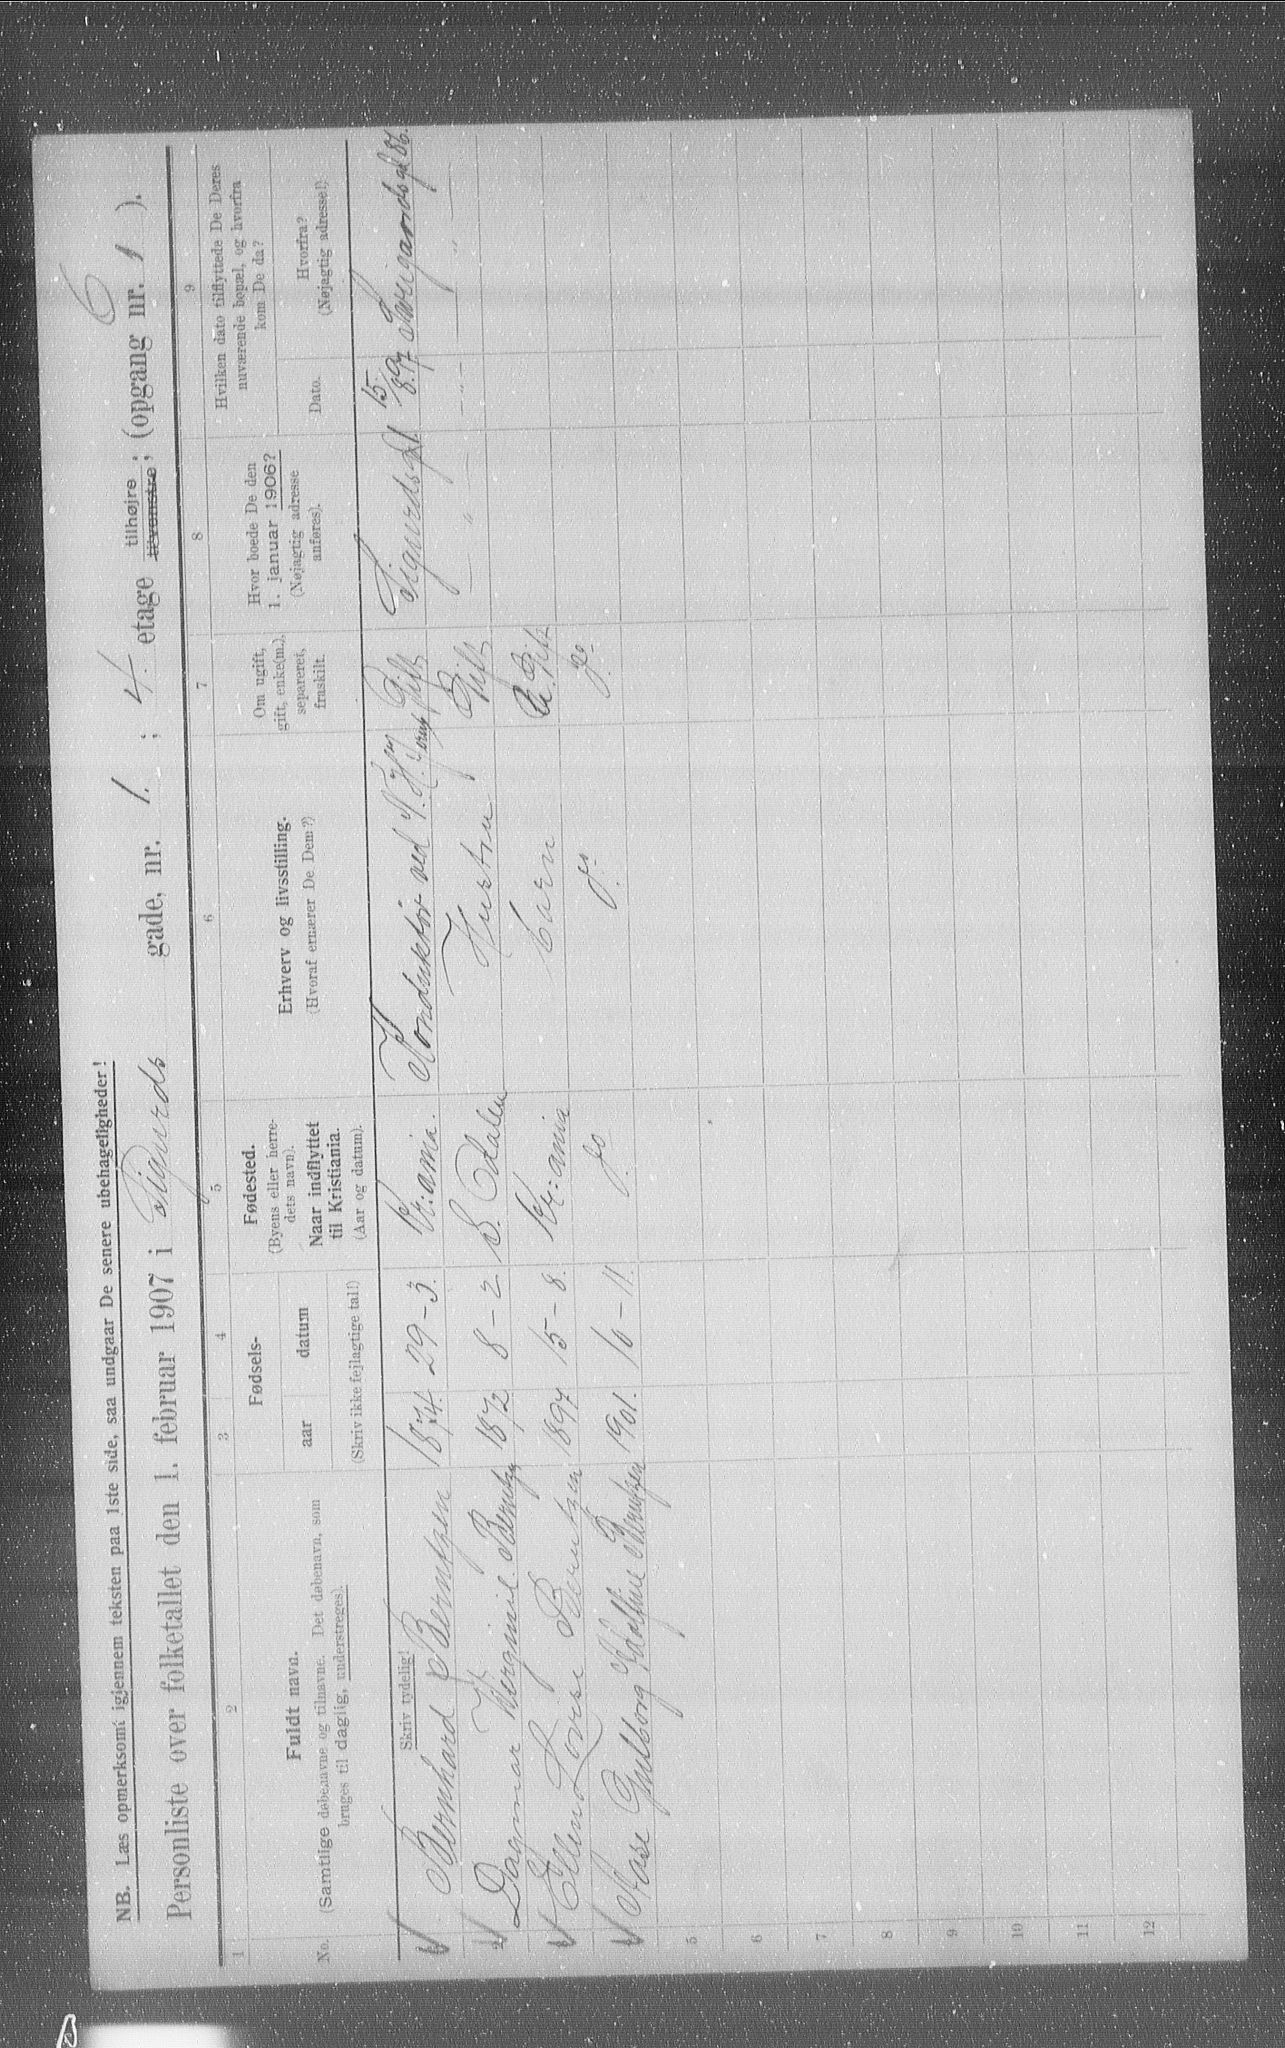 NB. Læs opmerksomt igjennem teksten paa 1ste side, saa undgaar De senere ubehageligheder!
6
Personliste over folketallet den 1. februar 1907 i Sigurds gade, nr. 1. ; 4. etage tilhøjre ; tilvenstre ; (opgang nr. 1 ).
1 2 3 4 5 6 7 8 9
No.
Fuldt navn.
(Samtlige døbenavne og tilnavne. Det døbenavn, som
bruges til daglig, understreges).
Skriv tydelig!
Fødsels-
aar datum
(Skriv ikke fejlagtige tal!)
Fødested.
(Byens eller herre-
dets navn).
Naar indflyttet
til Kristiania.
(Aar og datum).
Erhverv og livsstilling.
(Hvoraf ernærer De Dem?)
Om ugift,
gift, enke(m.),
separeret,
fraskilt.
Hvor boede De den
1. januar 1906?
(Nøjagtig adresse
anføres).
Hvilken dato tilflyttede De Deres
nuværende bopæl, og hvorfra
kom De da?
Dato.
Hvorfra?
(Nøjagtig adresse!)
Bernhard Berntzen 1874. 29-3. Kr:ania. Konduktör ved Gift Sigurdsgd 1. 15/8.97
2 Dagmar Berntzen 1872 8-2 S. Odalen Hustru Gift — " — — " — — " —
Ellen Berntzen 1897 15-8. Kr:ania barn U. Gift
Aase Gulborg Berntzen 1901. 16-11. do do do
5
6
7
8
9
10
11
12